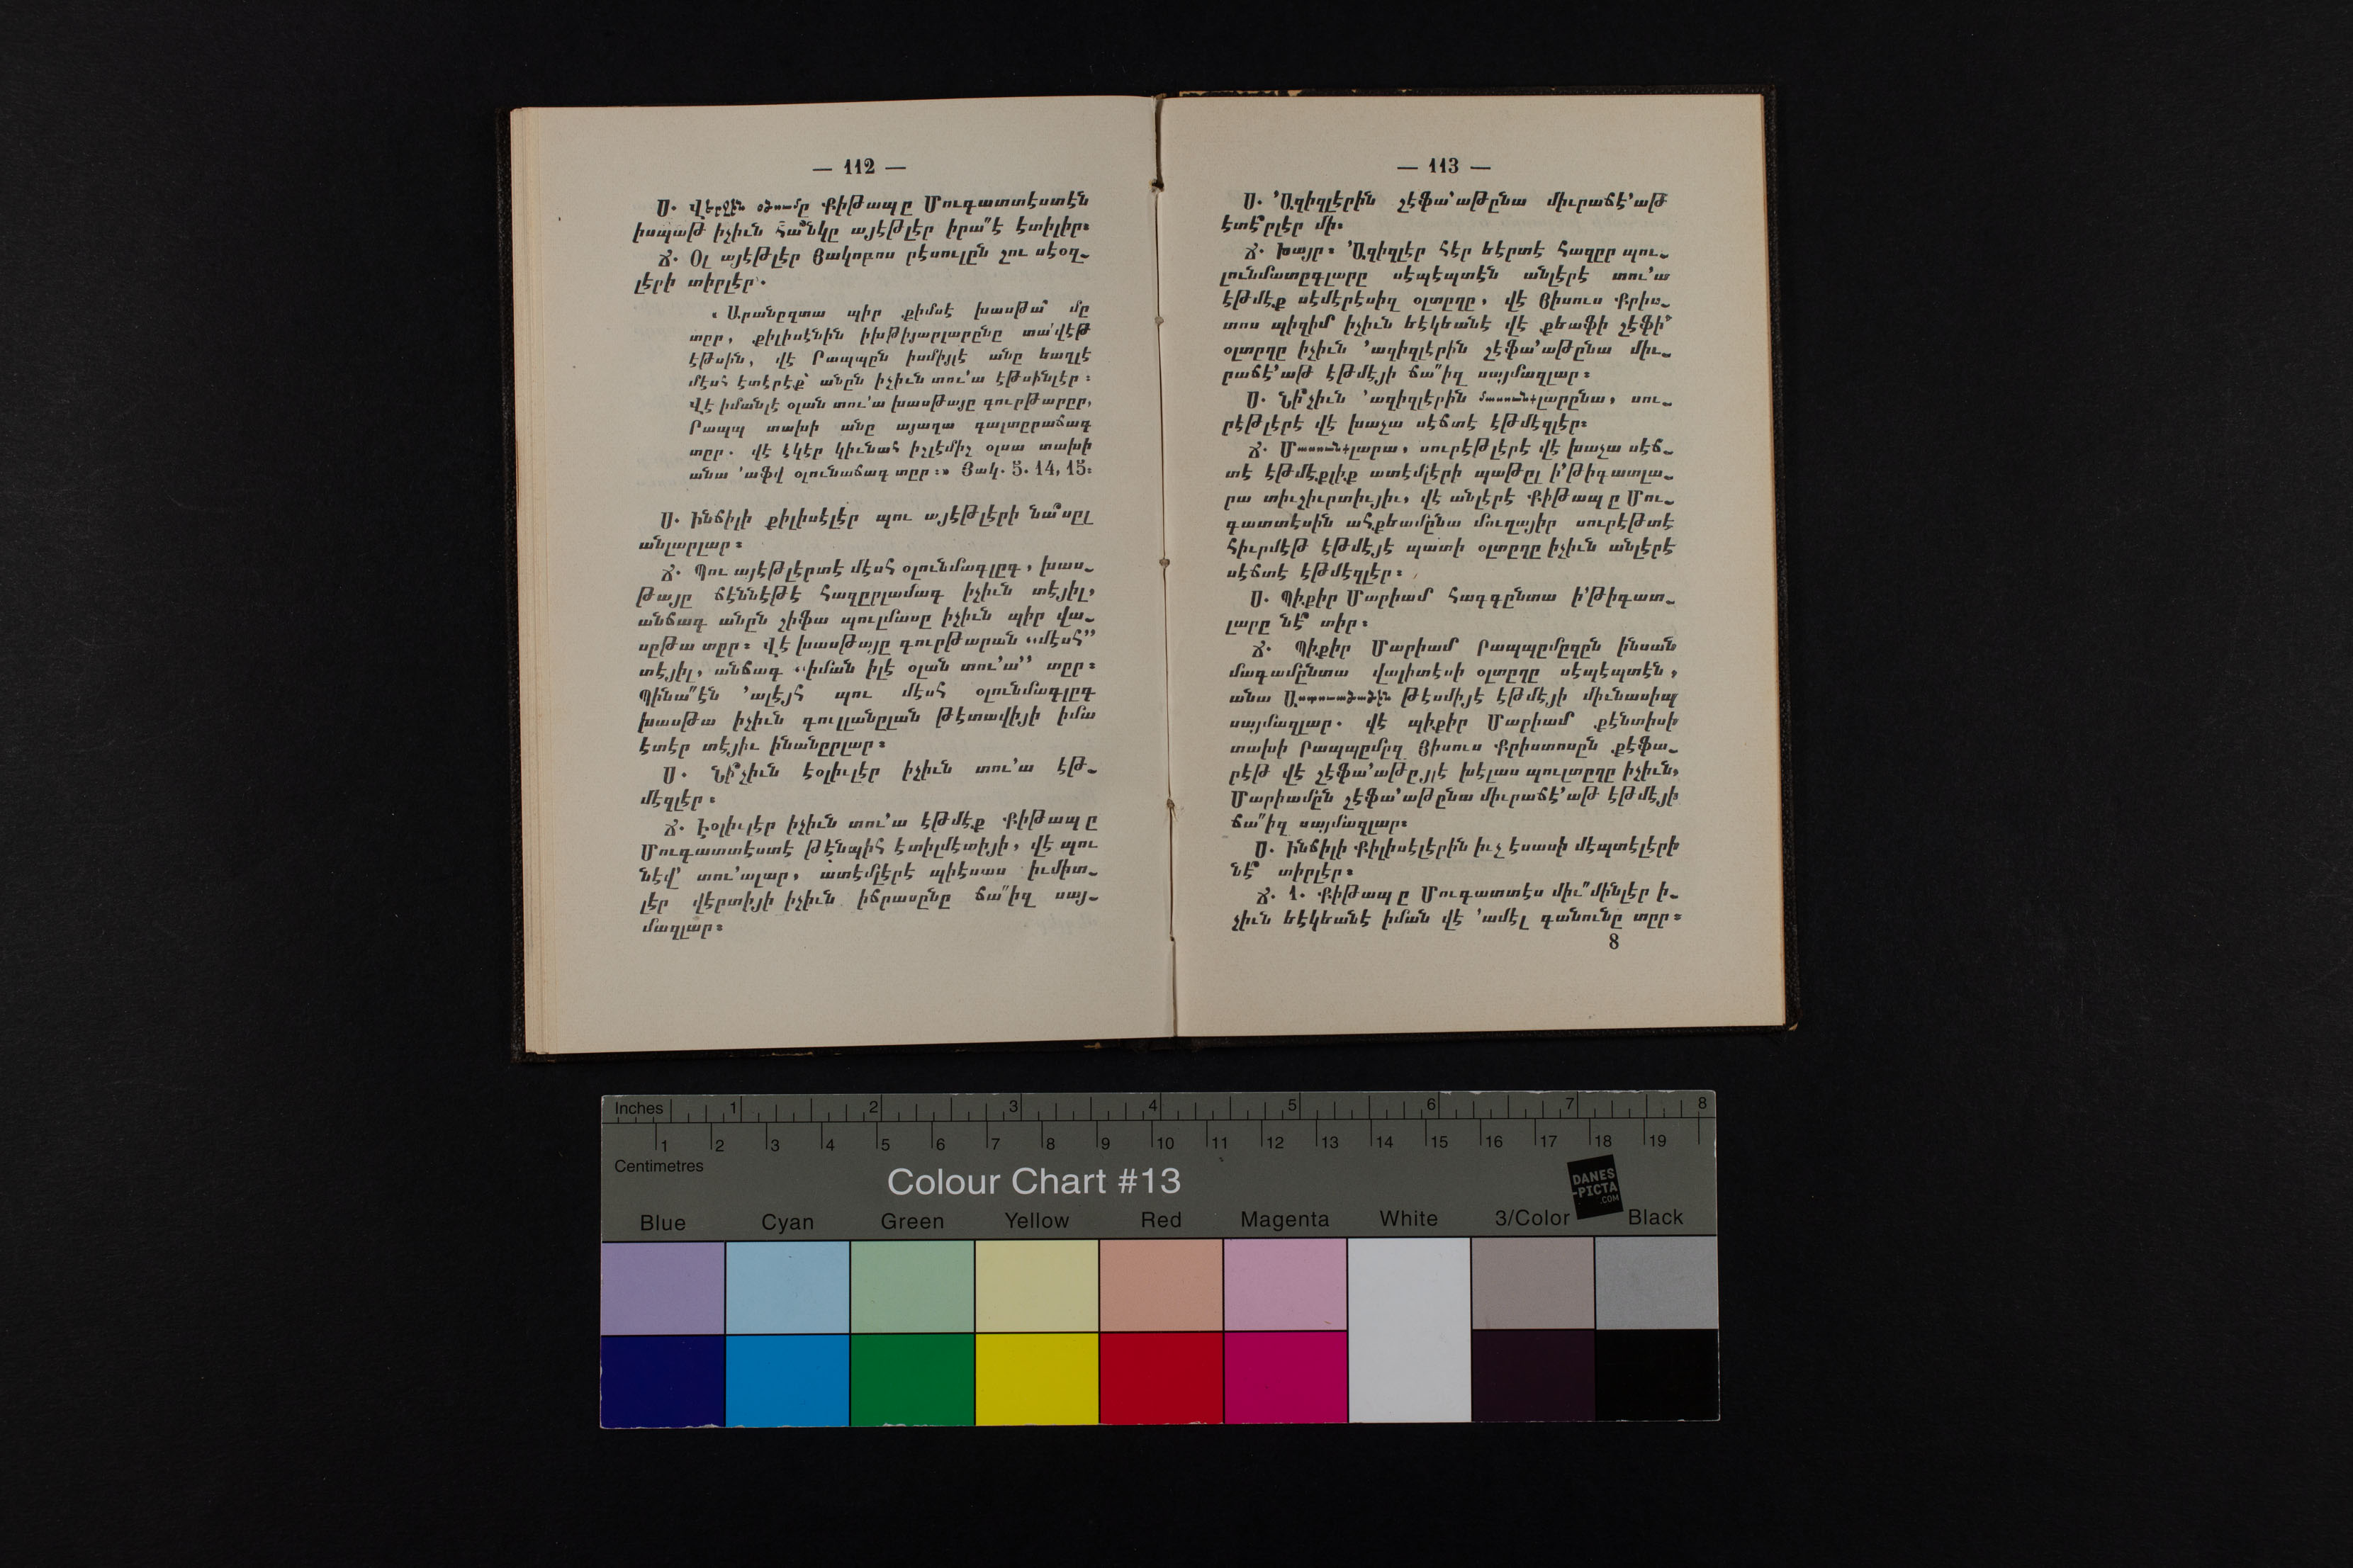 — 112 —
Ս. Վերջին օծումը Քիթապը Մուգատտէստէն
իսպաթ իչիւն հա՞նկը այէթլէր իրա՞է էտիլիր։
Ճ. Օլ այէթլէր Յակոբոս րէսուլըն շու սէօզ֊
լէրի տիրլէր.
« Արանըզտա պիր քիմսէ խասթա՞ մը
տըր, քիլիսէնին իխթիյարլարընը տա՛վէթ
էթսին, վէ Րապպըն իսմիյլէ անը եաղլէ
մէսհ էտէրէք՝ անըն իչիւն տու՛ա էթսինլէր։
Վէ իմանլէ օլան տու՛ա խասթայը գուրթարըր,
Րապպ տախի անը այաղա գալտըրաճագ
տըր. վէ էկէր կիւնահ իշլէմիշ օլսա տախի
անա ՛աֆվ օլունաճագ տըր։» Յակ. 5. 14, 15։
Ս. Ինճիլի քիլիսէլէր պու այէթլէրի նա՞սըլ
անլարլար։
Ճ. Պու այէթլէրտէ մէսհ օլունմագլըգ, խաս֊
թայը ճէննէթէ հազըրլամագ իչիւն տէյիլ,
անճագ անըն շիֆա պուլմասը իչիւն պիր վա֊
սըթա տըր։ Վէ խասթայը գուրթարան “մէսհ”
տէյիլ, անճագ “իման իլէ օլան տու՛ա” տըր։
Պինա՞էն ՛ալէյհ պու մէսհ օլունմագլըգ
խասթա իչիւն գուլլանըլան թէտավիյի իմա
էտէր տէյիւ ինանըրլար։
Ս. Նի՞չիւն էօլիւլէր իչիւն տու՛ա էթ֊
մէզլէր։
Ճ. Էօլիւլէր իչիւն տու՛ա էթմէք Քիթապը
Մուգատտէստէ թէնպիհ էտիլմէտիյի, վէ պու
նէվ՛ տու՛ալար, ատէմլէրէ պիէսաս իւմիտ֊
լէր վէրտիյի իչիւն իճրասընը ճա՞իզ սայ֊
մազլար։
— 113 —
Ս. ՛Ազիզլէրին շէֆա՛աթընա միւրաճէ՛աթ
էտէ՞րլէր մի։
Ճ. Խայր։ ՛Ազիզլէր հէր եէրտէ հազըր պու֊
լունմատըգլարը սէպէպտէն անլէրէ տու՛ա
էթմէք սէմէրէսիզ օլտըղը, վէ Յիսուս Քրիս֊
տոս պիզիմ իչիւն եէկեանէ վէ քեաֆի շէֆի՛
օլտըղը իչիւն ՛ազիզլէրին շէֆա՛աթընա միւ֊
րաճէ՛աթ էթմէյի ճա՞իզ սայմազլար։
Ս. Նի՞չիւն ՛ազիզլէրին մասունքլարընա, սու֊
րէթլէրէ վէ խաչա սէճտէ էթմէզլէր։
Ճ. Մասունքլարա, սուրէթլէրէ վէ խաչա սէճ֊
տէ էթմէքլիք ատէմլէրի պաթըլ ի՛թիգատլա֊
րա տիւշիւրտիւյիւ, վէ անլէրէ Քիթապը Մու֊
գատտէսին ահքեամընա մուղայիր սուրէթտէ
հիւրմէթ էթմէյէ պատի օլտըղը իչիւն անլէրէ
սէճտէ էթմէզլէր։
Ս. Պիքիր Մարիամ հագգընտա ի՛թիգատ֊
լարը նէ՞ տիր։
Ճ. Պիքիր Մարիամ Րապպըմըզըն ինսան
մագամընտա վալիտէսի օլտըղը սէպէպտէն,
անա Աստուածածին թէսմիյէ էթմէյի միւնասիպ
սայմազլար. վէ պիքիր Մարիամ քէնտիսի
տախի Րապպըմըզ Յիսուս Քրիստոսըն քէֆա֊
րէթ վէ շէֆա՛աթըյլէ խէլաս պուլտըղը իչիւն,
Մարիամըն շէֆա՛աթընա միւրաճէ՛աթ էթմէյի
ճա՞իզ սայմազլար։
Ս. Ինճիլի Քիլիսէլէրին իւչ էսասի մէպտէլէրի
նէ՞ տիրլէր։
Ճ. 1. Քիթապը Մուգատտէս միւ՞մինլէր ի֊
չիւն եէկեանէ իման վէ ՛ամէլ գանունը տըր։
8
Inches 1 2 3 4 5 6 7 8
1 2 3 4 5 6 7 8 9 10 11 12 13 14 15 16 17 18 19
Centimetres
Colour Chart #13
DANES
-PICTA
.COM
Blue Cyan Green Yellow Red Magenta White 3/Color Black